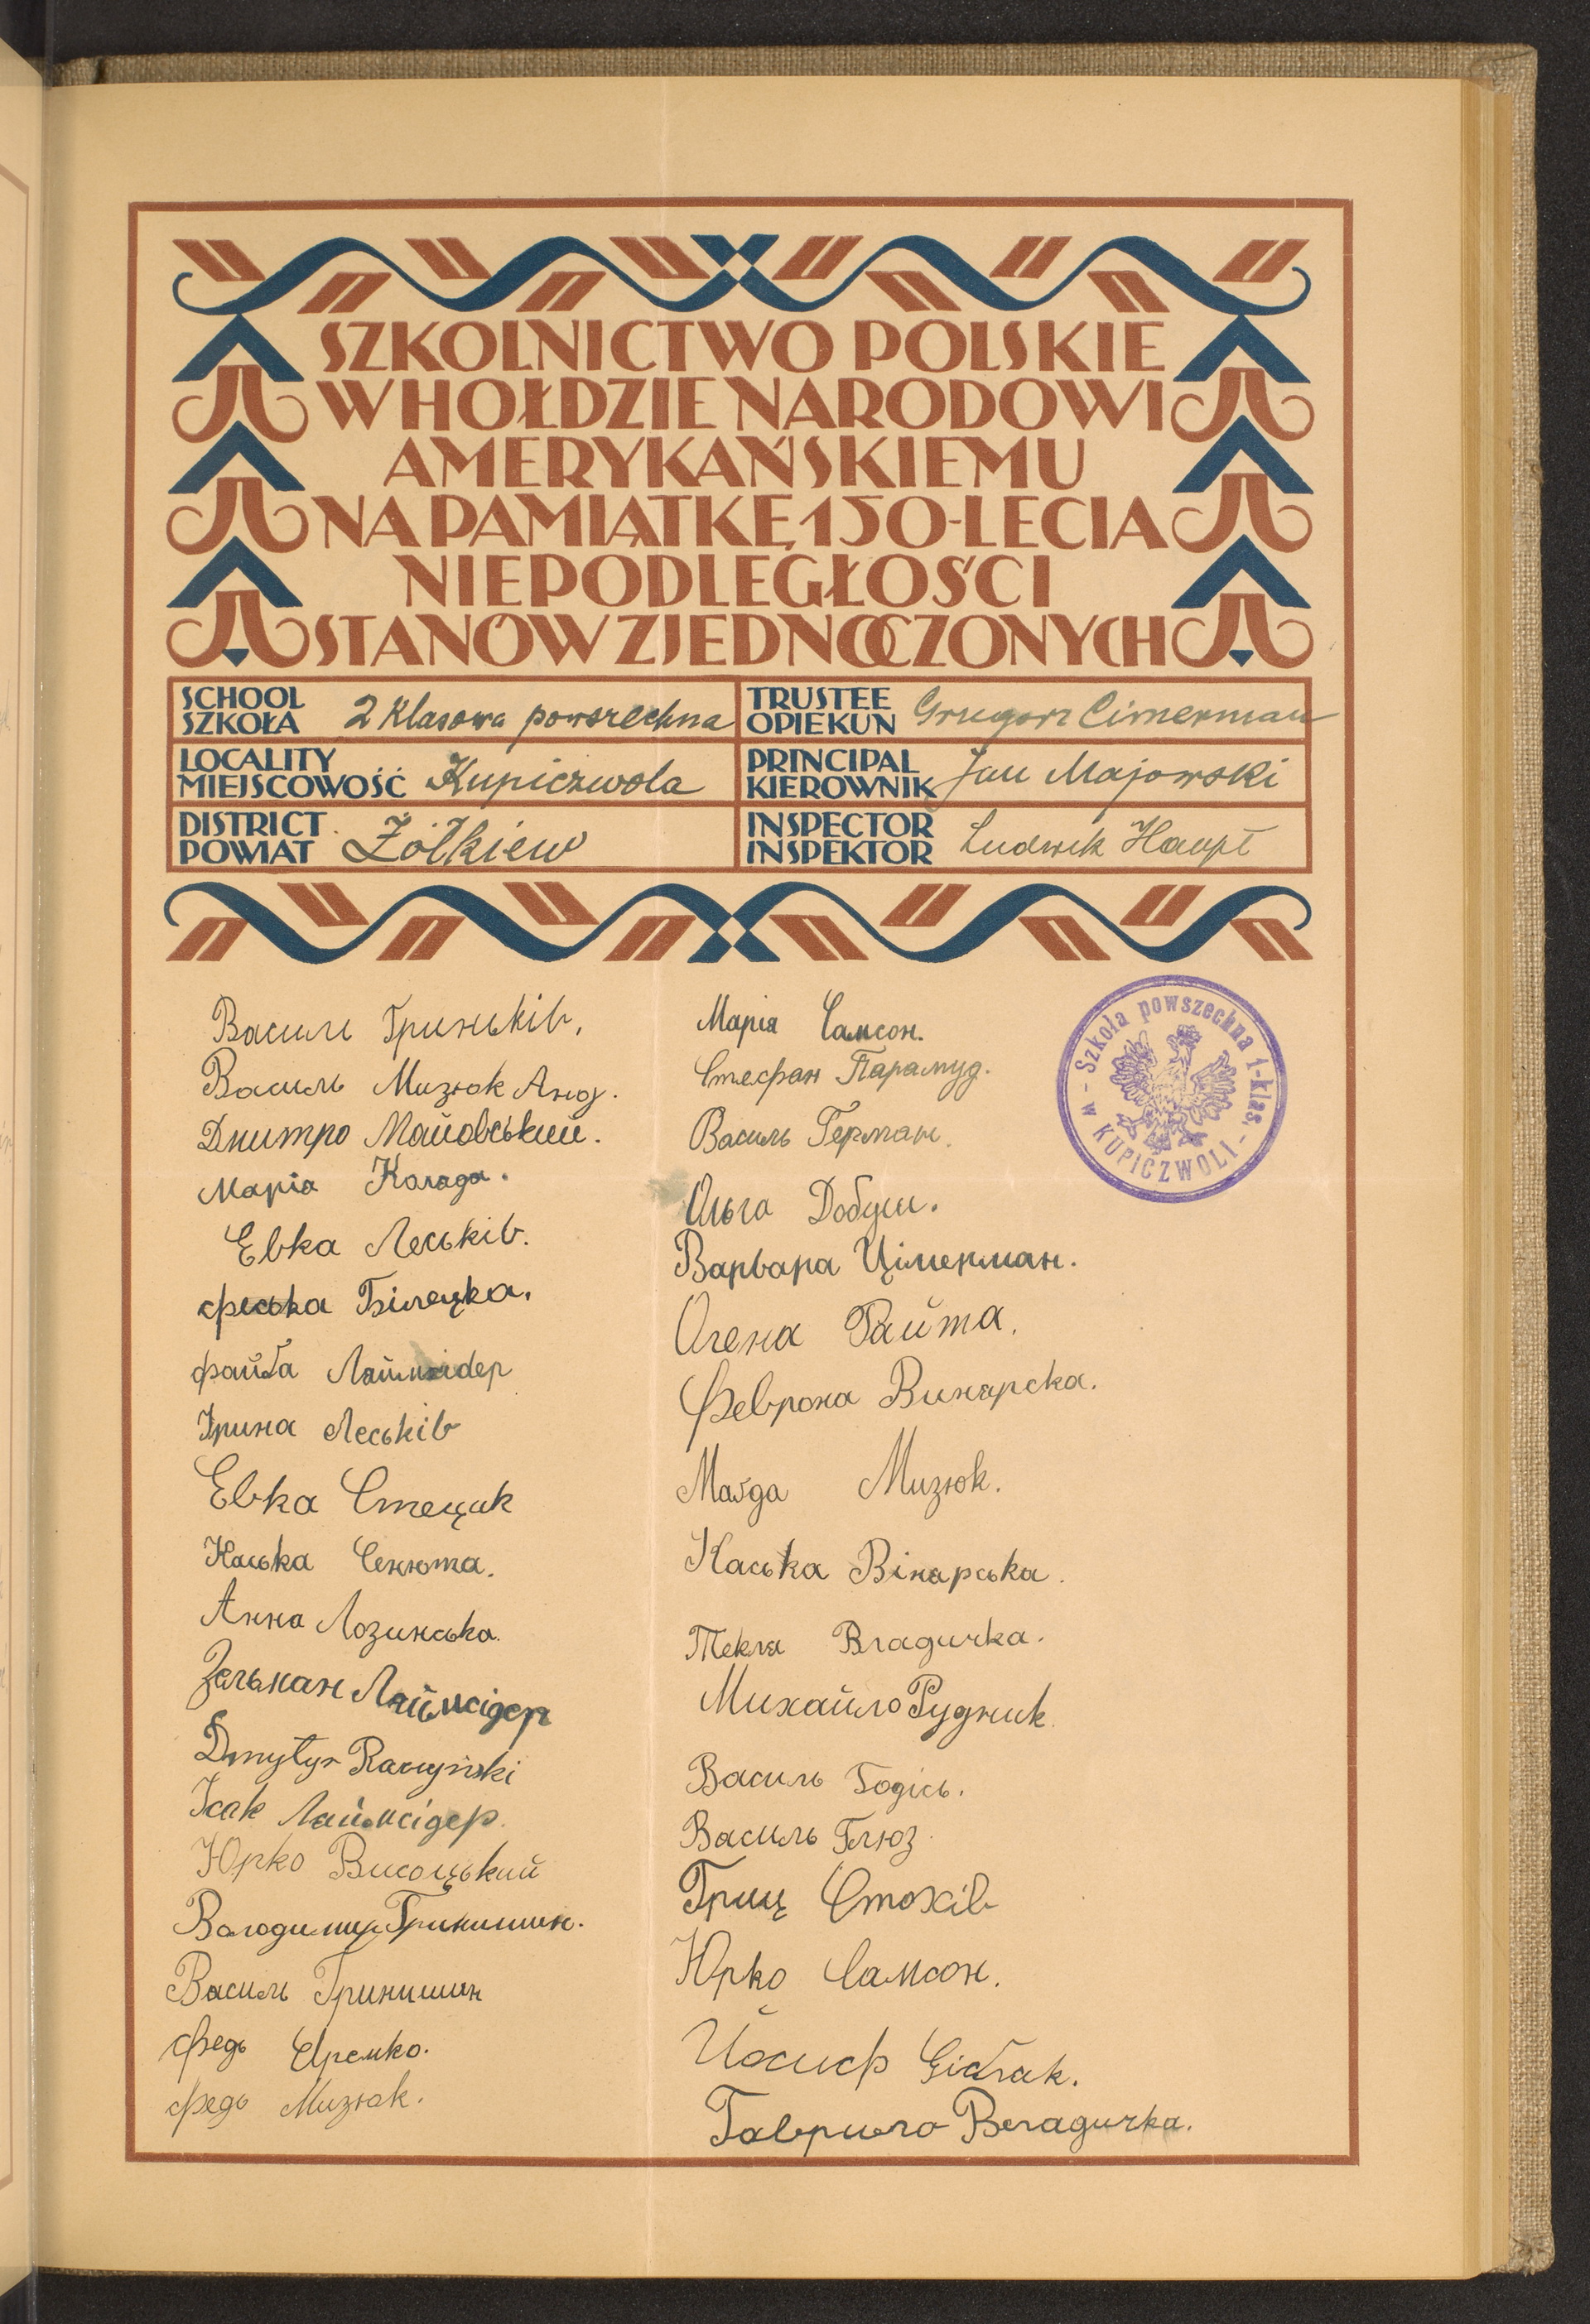 SZKOLNICTWO POLSKIE
W HOŁDZIE NARODOWI
AMERYKAŃSKIEMU
NA PAMIĄTKĘ 150-LECIA
NIEPODLEGŁOŚCI
STANÓW ZJEDNOCZONYCH
SCHOOL
SZKOŁA 2 klasowa powszechna
TRUSTEE
OPIEKUN Grzegorz Cimerman
LOCALITY
MIEJSCOWOŚĆ Kupiczwola
PRINCIPAL
KIEROWNIK Jan Majowski
DISTRICT
POWIAT Żółkiew
INSPECTOR
INSPEKTOR Ludwik Haupt
- Szkoła powszechna 1-klas. -
w KUPICZWOLI
Василь Гриньків.
Василь Мизюк Анд.
Дмитро Майовський.
Марія Коляда.
Евка Леськів.
Феська Білецка.
Файґа Лаймсідер
Ірина Леськів
Евка Стецик
Каська Сенюта.
Анна Лозинська.
Зельман Лаймсідер
Dmytyr Raczyński
Ісак Лаймсідер.
Юрко Висоцький
Володимир Гринишин.
Василь Гринишин
Федь Яремко.
Федь Мизюк.
Марія Самсон.
Стефан Парамуд.
Василь Герман.
Ольга Добуш.
Варвара Цімерман.
Олена Гайта.
Феврона Винярска.
Маґда Мизюк.
Каська Вінярська.
Текля Владичка.
Михайло Рудник.
Василь Годісь.
Василь Глюз.
Гриц Стохів
Юрко Самсон.
Йосиф Ґіблак.
Гаврило Владичка.